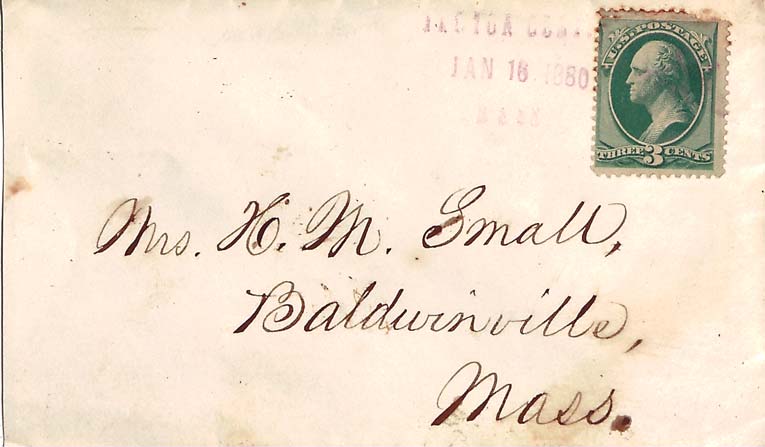 ACTON CENT
JAN 16 1880
MASS
U.S. POSTAGE
THREE 3 CENTS
Mrs. H. M. Small,
Baldwinville,
Mass.